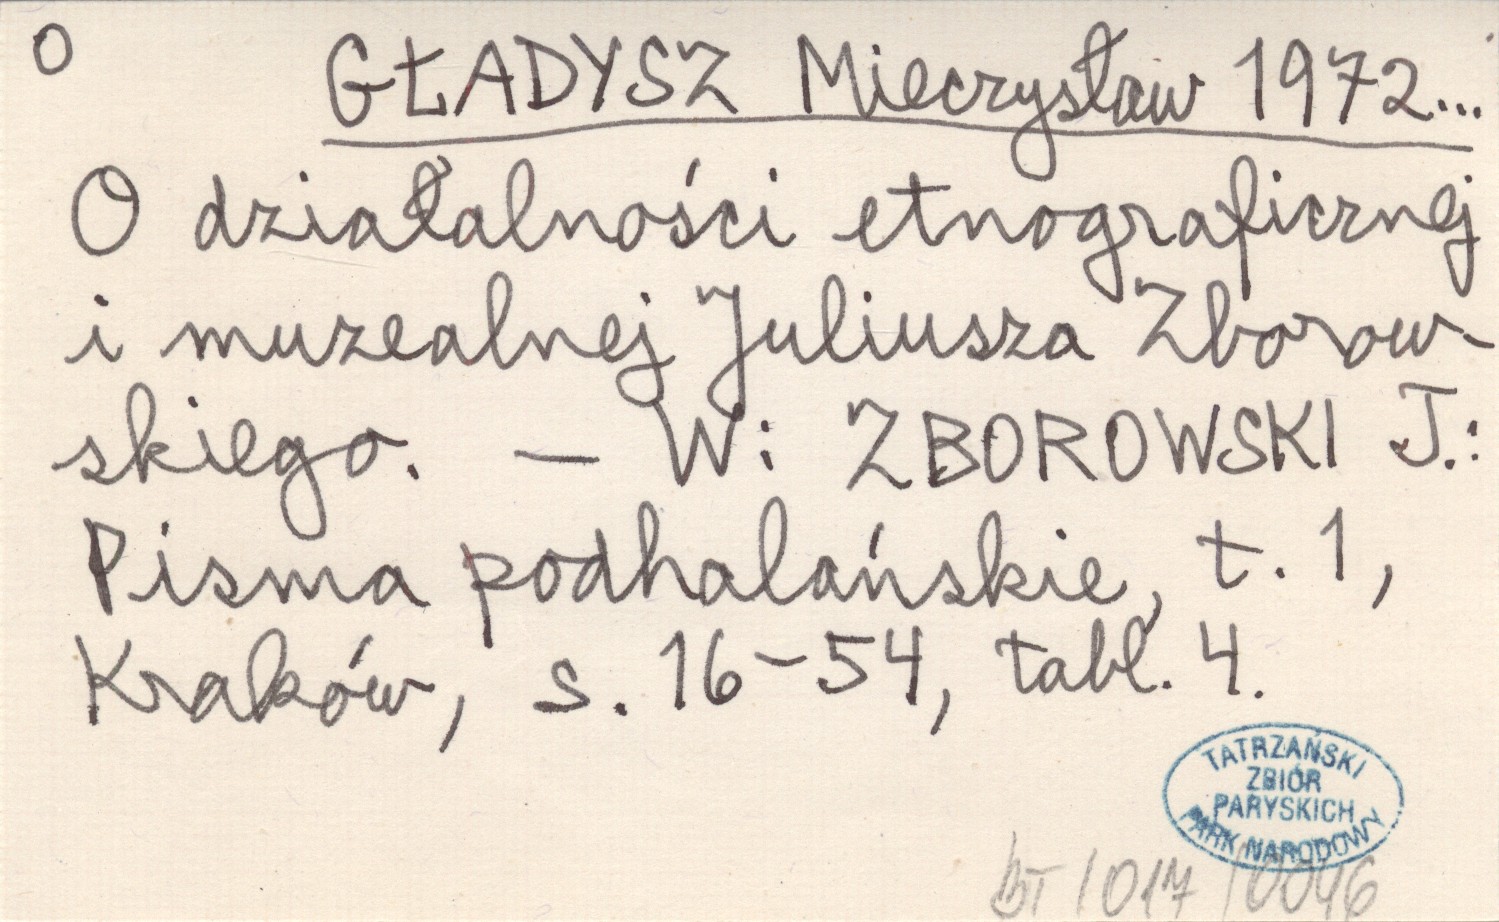 O
GŁADYSZ Mieczysław 1972...
O działalności etnograficznej
i muzealnej Juliusza Zborow-
skiego. — W: ZBOROWSKI J.:
Pisma podhalańskie, t. 1,
Kraków, s. 16-54, tabl. 4.
TATRZAŃSKI
ZBIÓR
PARYSKICH
PARK NARODOWY
BT/017/0046